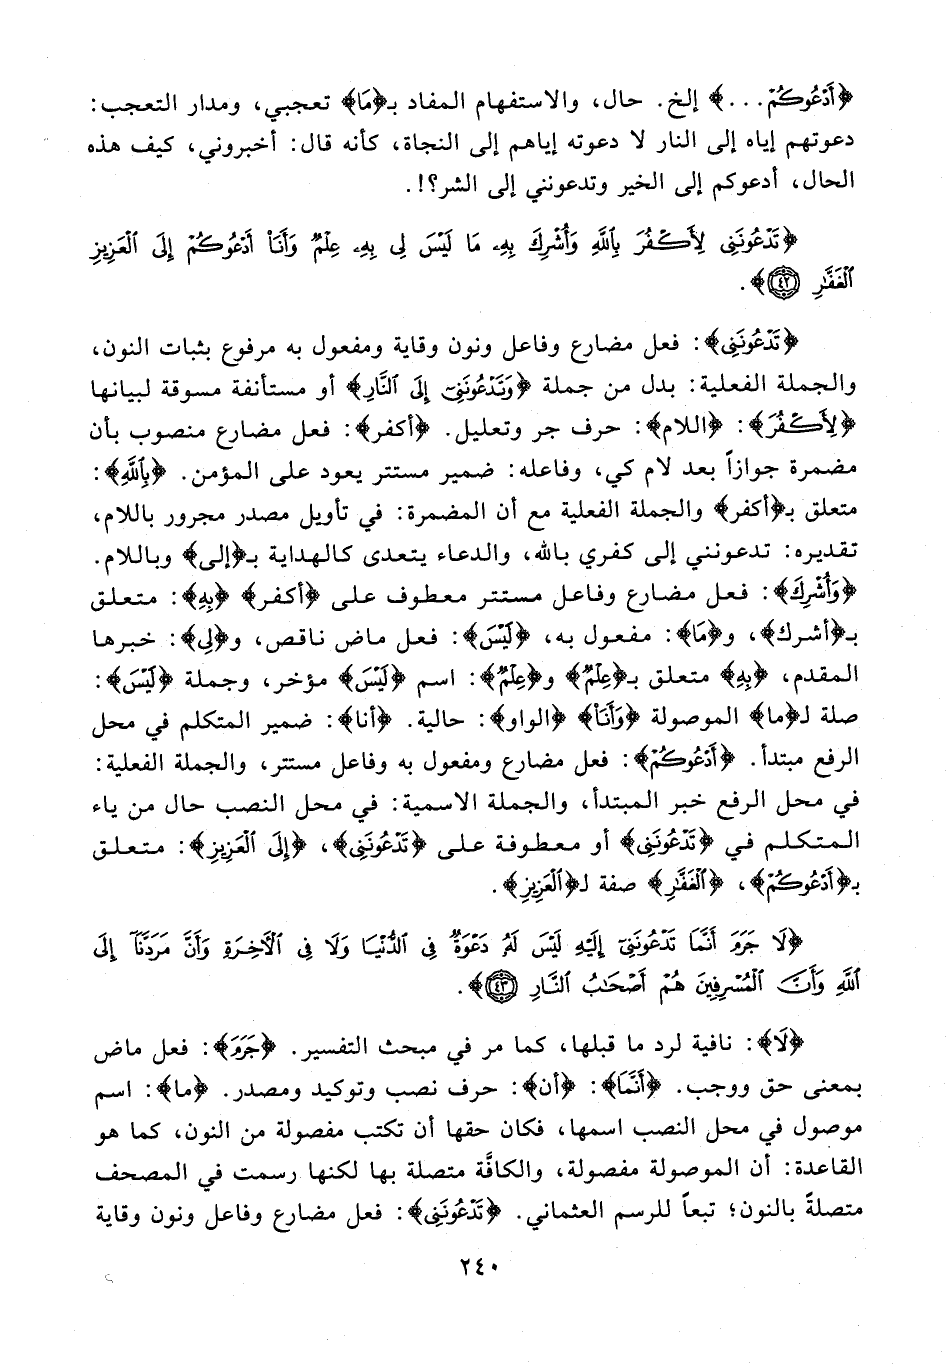 ﴿أَدْعُوكُمْ...﴾ إلخ. حال، والاستفهام المفاد بـ﴿مَا﴾ تعجبي، ومدار التعجب:
دعوتهم إياه إلى النار لا دعوته إياهم إلى النجاة، كأنه قال: أخبروني، كيف هذه
الحال، أدعوكم إلى الخير وتدعونني إلى الشر؟!.
﴿تَدْعُونَنِى لِأَكْفُرَ بِٱللَّهِ وَأُشْرِكَ بِهِۦ مَا لَيْسَ لِى بِهِۦ عِلْمٌ وَأَنَا۠ أَدْعُوكُمْ إِلَى ٱلْعَزِيزِ
ٱلْغَفَّٰرِ ٤٢﴾.
﴿تَدْعُونَنِى﴾: فعل مضارع وفاعل ونون وقاية ومفعول به مرفوع بثبات النون،
والجملة الفعلية: بدل من جملة ﴿وَتَدْعُونَنِىٓ إِلَى ٱلنَّارِ﴾ أو مستأنفة مسوقة لبيانها
﴿لِأَكْفُرَ﴾: ﴿اللام﴾: حرف جر وتعليل. ﴿أكفر﴾: فعل مضارع منصوب بأن
مضمرة جوازاً بعد لام كي، وفاعله: ضمير مستتر يعود على المؤمن. ﴿بِٱللَّهِ﴾:
متعلق بـ﴿أكفر﴾ والجملة الفعلية مع أن المضمرة: في تأويل مصدر مجرور باللام،
تقديره: تدعونني إلى كفري بالله، والدعاء يتعدى كالهداية بـ﴿إلى﴾ وباللام.
﴿وَأُشْرِكَ﴾: فعل مضارع وفاعل مستتر معطوف على ﴿أكفر﴾ ﴿بِهِ﴾: متعلق
بـ﴿أشرك﴾، و﴿مَا﴾: مفعول به، ﴿لَيْسَ﴾: فعل ماض ناقص، و﴿لِى﴾: خبرها
المقدم، ﴿بِهِ﴾ متعلق بـ﴿عِلْمٌ﴾ و﴿عِلْمٌ﴾: اسم ﴿لَيْسَ﴾ مؤخر، وجملة ﴿لَيْسَ﴾:
صلة لـ﴿ما﴾ الموصولة ﴿وَأَنَا۠﴾ ﴿الواو﴾: حالية. ﴿أنا﴾: ضمير المتكلم في محل
الرفع مبتدأ. ﴿أَدْعُوكُمْ﴾: فعل مضارع ومفعول به وفاعل مستتر، والجملة الفعلية:
في محل الرفع خبر المبتدأ، والجملة الاسمية: في محل النصب حال من ياء
المتكلم في ﴿تَدْعُونَنِى﴾ أو معطوفة على ﴿تَدْعُونَنِى﴾، ﴿إِلَى ٱلْعَزِيزِ﴾: متعلق
بـ﴿أَدْعُوكُمْ﴾، ﴿ٱلْغَفَّٰرِ﴾ صفة لـ﴿ٱلْعَزِيزِ﴾.
﴿لَا جَرَمَ أَنَّمَا تَدْعُونَنِىٓ إِلَيْهِ لَيْسَ لَهُۥ دَعْوَةٌ فِى ٱلدُّنْيَا وَلَا فِى ٱلْءَاخِرَةِ وَأَنَّ مَرَدَّنَآ إِلَى
ٱللَّهِ وَأَنَّ ٱلْمُسْرِفِينَ هُمْ أَصْحَٰبُ ٱلنَّارِ ٤٣﴾.
﴿لَا﴾: نافية لرد ما قبلها، كما مر في مبحث التفسير. ﴿جَرَمَ﴾: فعل ماض
بمعنى حق ووجب. ﴿أَنَّمَا﴾: ﴿أن﴾: حرف نصب وتوكيد ومصدر. ﴿ما﴾: اسم
موصول في محل النصب اسمها، فكان حقها أن تكتب مفصولة من النون، كما هو
القاعدة: أن الموصولة مفصولة، والكافَّة متصلة بها لكنها رسمت في المصحف
متصلةً بالنون؛ تبعاً للرسم العثماني. ﴿تَدْعُونَنِى﴾: فعل مضارع وفاعل ونون وقاية
٢٤٠